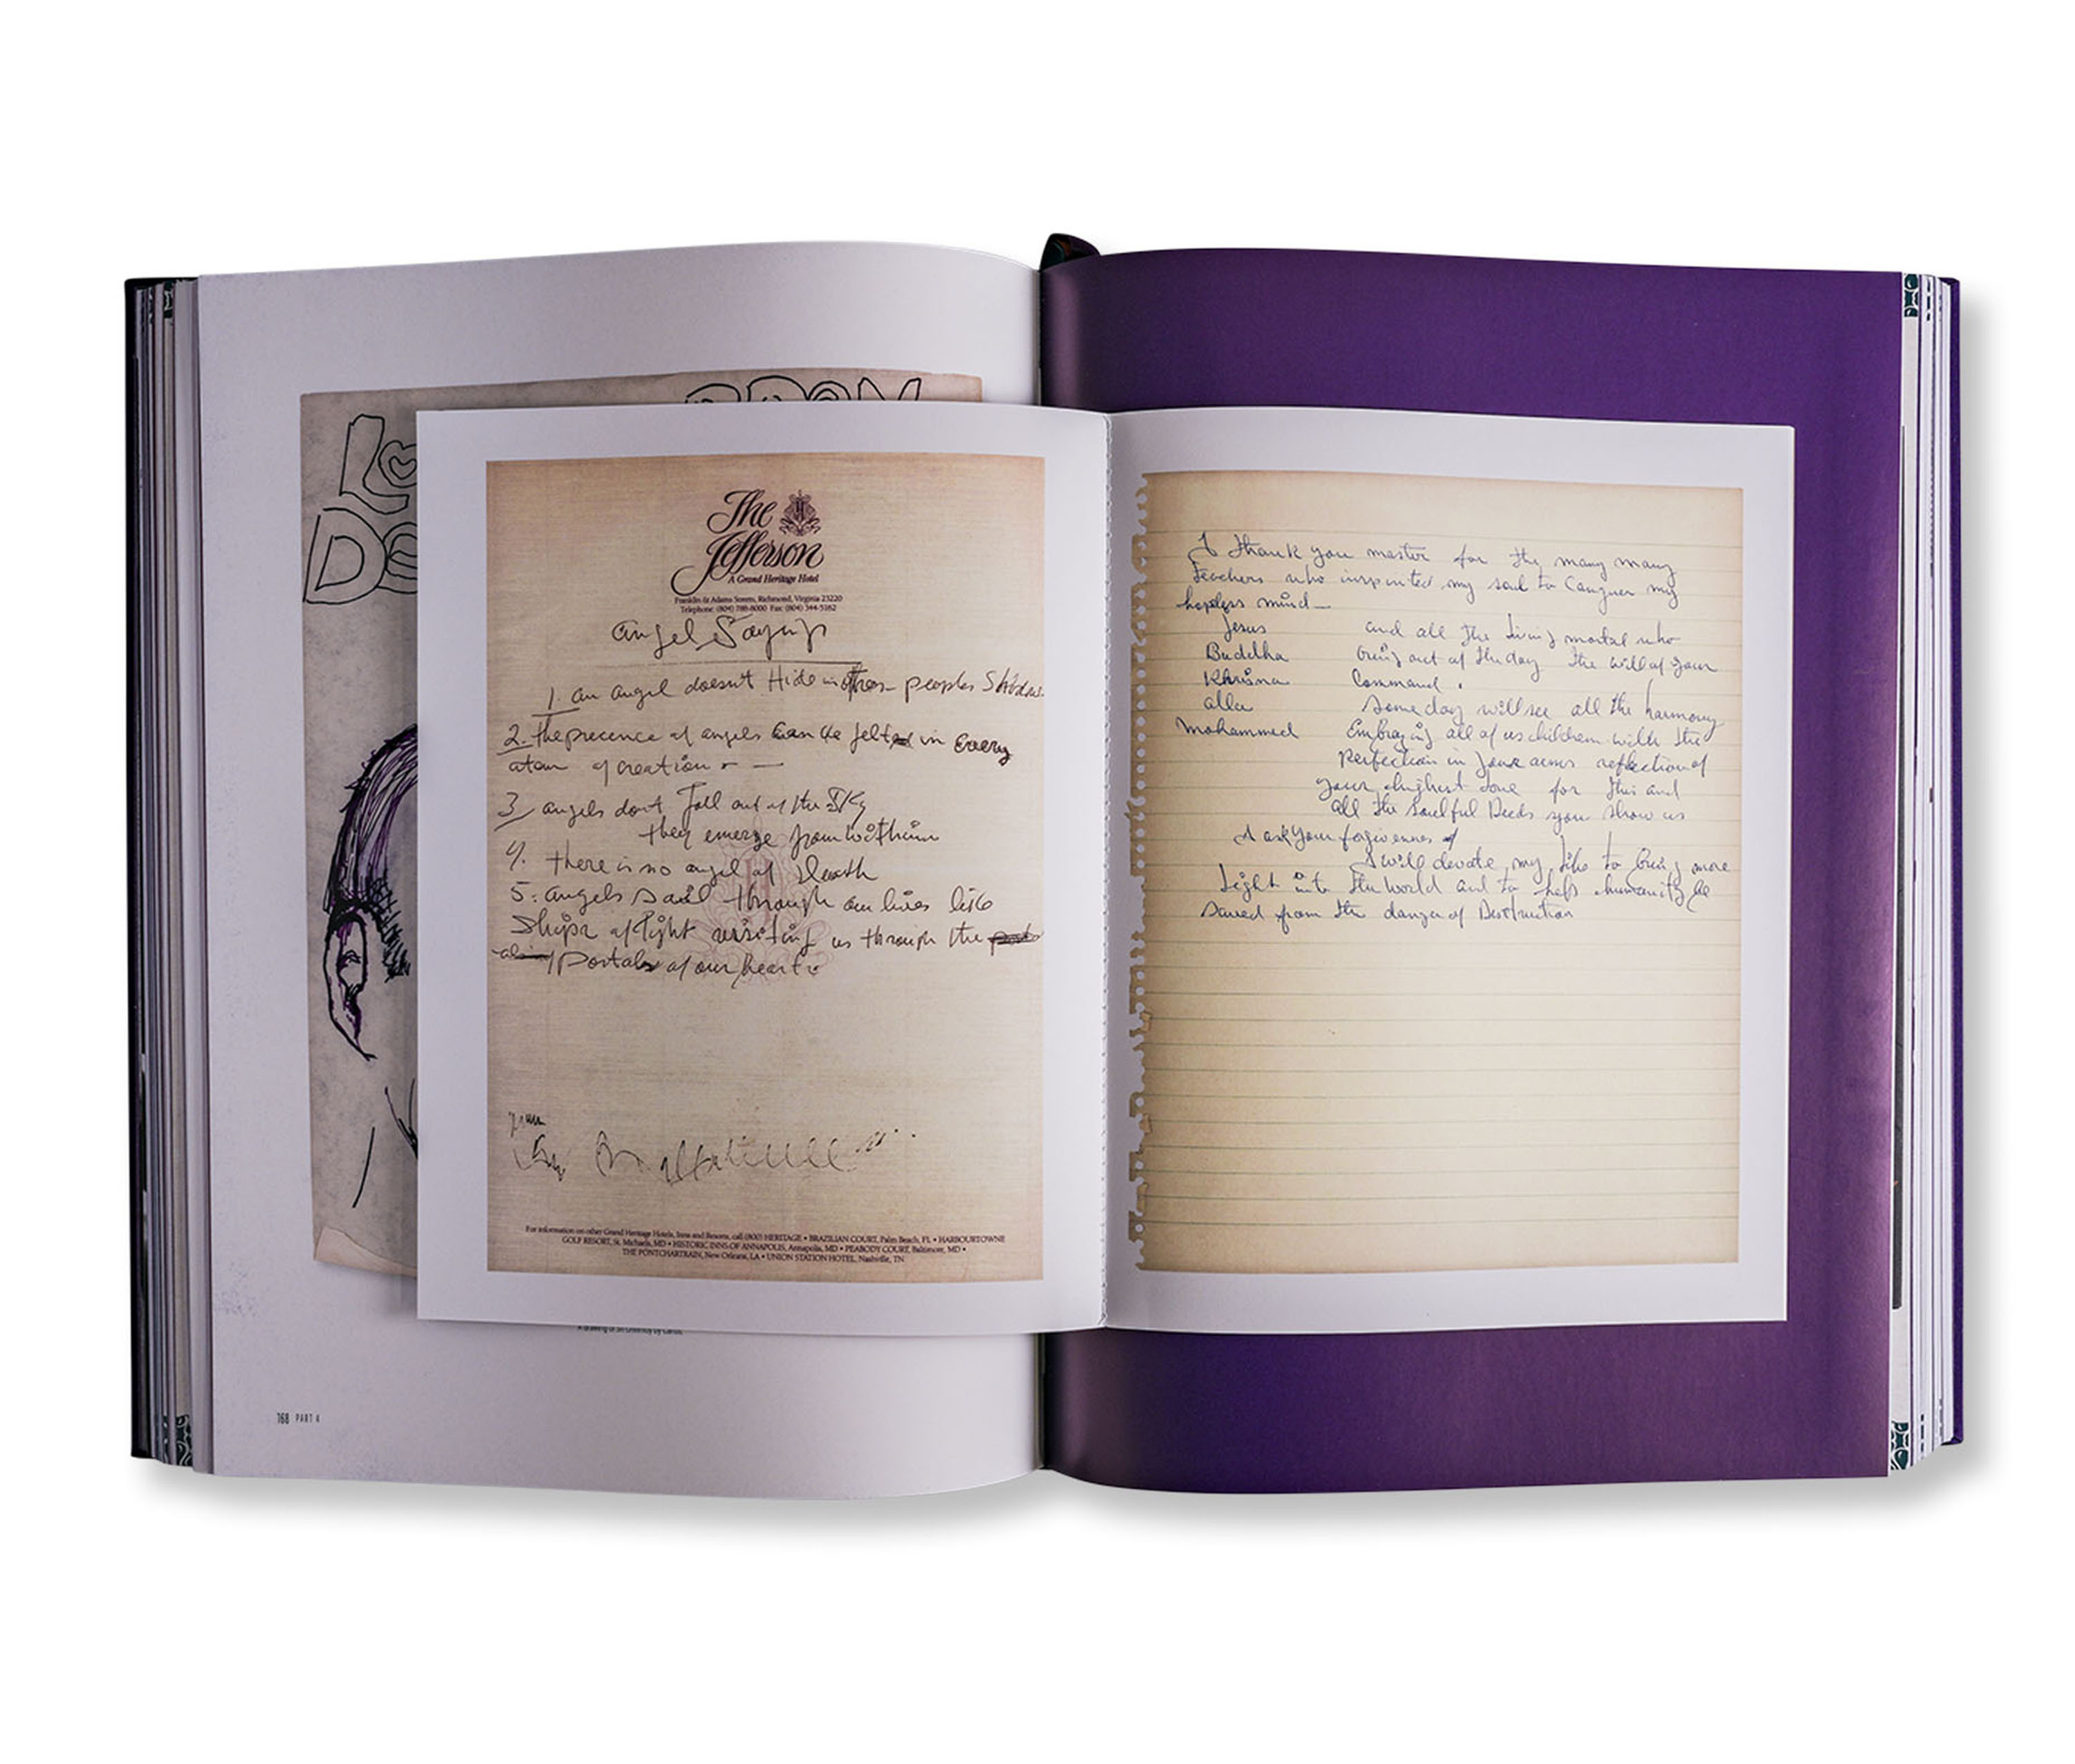 Lo
De
The
Jefferson
A Grand Heritage Hotel
Franklin & Adams Streets, Richmond, Virginia 23220
Telephone: (804) 788-8000 Fax: (804) 344-5162
angel Sayings
1. an angel doesnt Hide in peoples
2. the precence of angels can be felt in Every
atom of creation - —
3 angels dont Fall out of the SKy
they emerge from within
4. there is no angel of Death
5. angels sail through our lives like
Ships of Light visiting us through the
portals of our heart
For information on other Grand Heritage Hotels, Inns and Resorts, call (800) HERITAGE • BRAZILIAN COURT, Palm Beach, FL • HARBOURTOWNE
GOLF RESORT, St. Michaels, MD • HISTORIC INNS OF ANNAPOLIS, Annapolis, MD • PEABODY COURT, Baltimore, MD •
THE PONTCHARTRAIN, New Orleans, LA • UNION STATION HOTEL, Nashville, TN
168 PART 4
I thank you master for the many many
Teachers who my soul to Conquer my
hopeless mind—
Jesus and all the living mortal who
Buddha bring out of the day the will of your
Khrisna Command.
alla Some day will see all the harmony
Mohammed Embracing all of us children with the
Perfection in your arms reflection of
your highest Love for this and
all the Soulful Deeds you show us
I ask your forgivenes
I will devote my life to bring more
Light into the World and to help humanity be
saved from the danger of Destruction